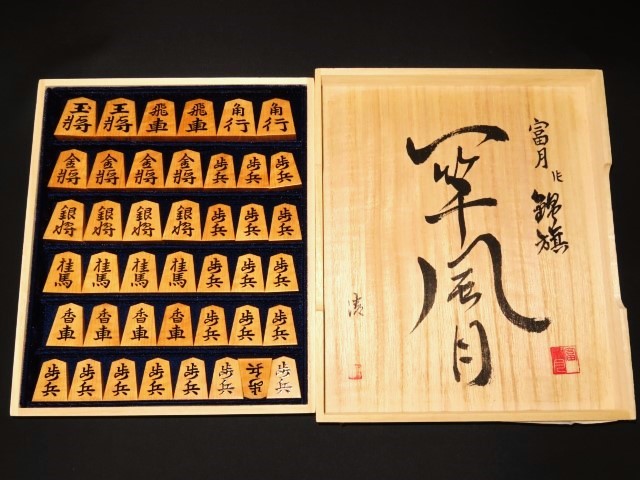 玉將 王將 飛車 飛車 角行 角行
金將 金將 金將 金將 歩兵 歩兵 歩兵
銀將 銀將 銀將 銀將 歩兵 歩兵 歩兵
桂馬 桂馬 桂馬 桂馬 歩兵 歩兵 歩兵
香車 香車 香車 香車 歩兵 歩兵 歩兵
歩兵 歩兵 歩兵 歩兵 歩兵 歩兵 歩兵 歩兵
富月作 錦旗
一竿風月